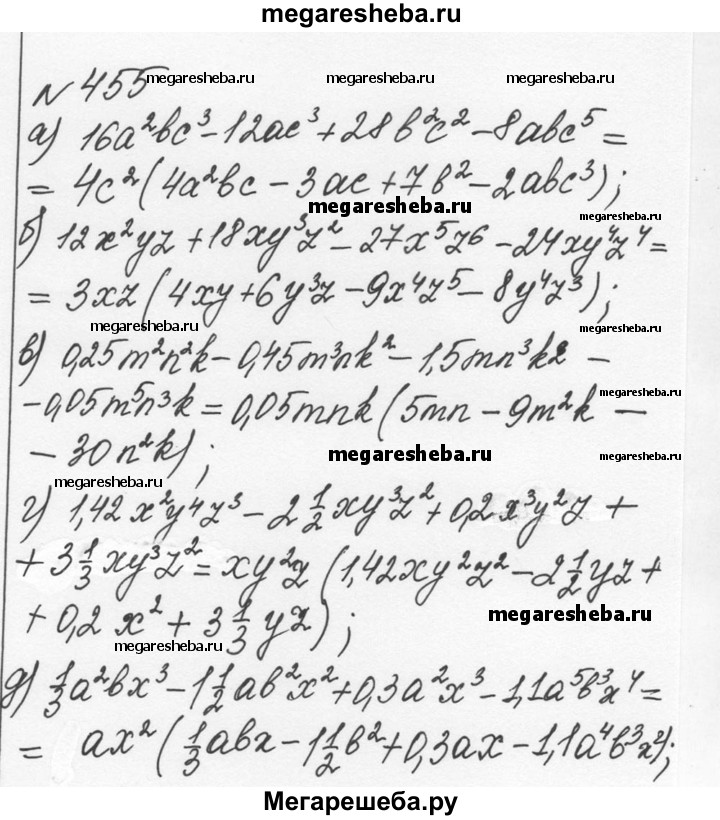 megaresheba.ru
№ 455 megaresheba.ru megaresheba.ru megaresheba.ru
а) 16a²bc³ - 12ac³ + 28b²c² - 8abc⁵ =
= 4c²(4a²bc - 3ac + 7b² - 2abc³);
megaresheba.ru
megaresheba.ru
б) 12x²yz + 18xy³z² - 27x⁵z⁶ - 24xy⁴z⁴ =
= 3xz(4xy + 6y³z - 9x⁴z⁵ - 8y⁴z³);
megaresheba.ru megaresheba.ru
в) 0,25m²n²k - 0,45m³nk² - 1,5mn³k2 -
- 0,05m⁵n³k = 0,05mnk(5mn - 9m²k -
megaresheba.ru
- 30n²k);
megaresheba.ru megaresheba.ru
megaresheba.ru
г) 1,42x²y⁴z³ - 2 1/2 xy³z² + 0,2x³y²z +
+ 3 1/3 xy³z² = xy²z(1,42xy²z² - 2 1/2 yz +
+ 0,2x² + 3 1/3 yz);
megaresheba.ru
megaresheba.ru megaresheba.ru
д) 1/3 a²bx³ - 1 1/2 ab²x² + 0,3a²x³ - 1,1a⁵b³x⁴ =
= ax²(1/3 abx - 1 1/2 b² + 0,3ax - 1,1a⁴b³x²);
Мегарешеба.ру